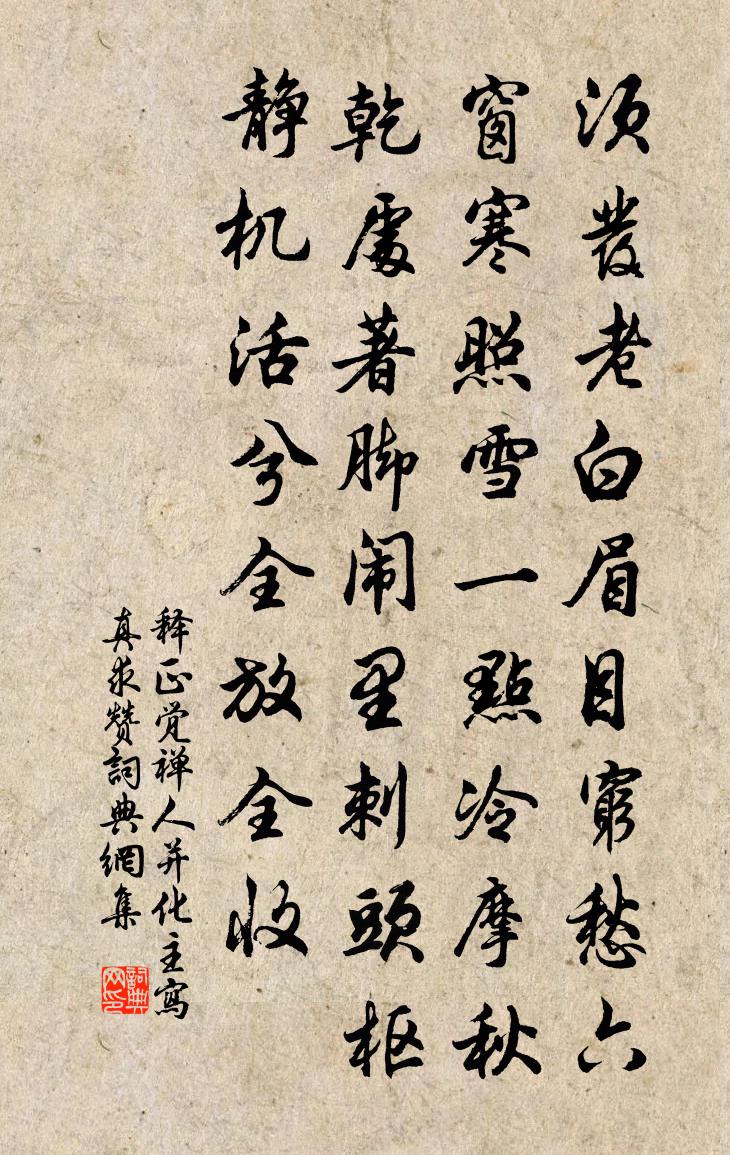 须发老白眉目穷愁六
窗寒照雪一點冷摩秋
乾處著脚闹里刺頭枢
静机活兮全放全收
释正觉禅人并化主寫
真求赞詞典網集
詞典网印